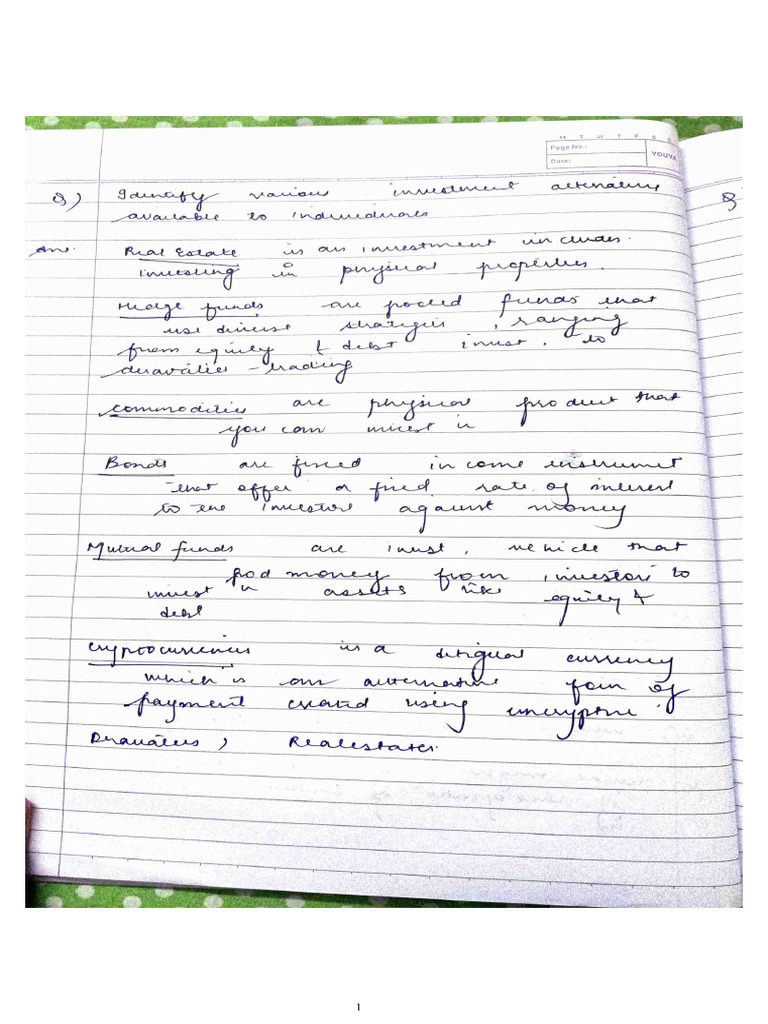 M T W T F S S
Page No.:
Date:
YOUVA
Q) Identify various investment alternative
available to individuals
Ans. Real Estate is an investment includes.
investing in physical properties.
Hedge funds are pooled funds that
use diverse strategies, ranging
from equity & debt invest. to
deravaties - trading
commodities are physical product that
you can invest in
Bonds are fixed income instrumet
that offer a fixed rate of interest
to the investors against money
Mutual funds are invest. vehicle that
pool money from investors to
invest in assets like equity &
debt
Cryptocurrencies is a ditigual currency
which is an alternative form of
payment created using
Deravaties, Realestates.
Q
1